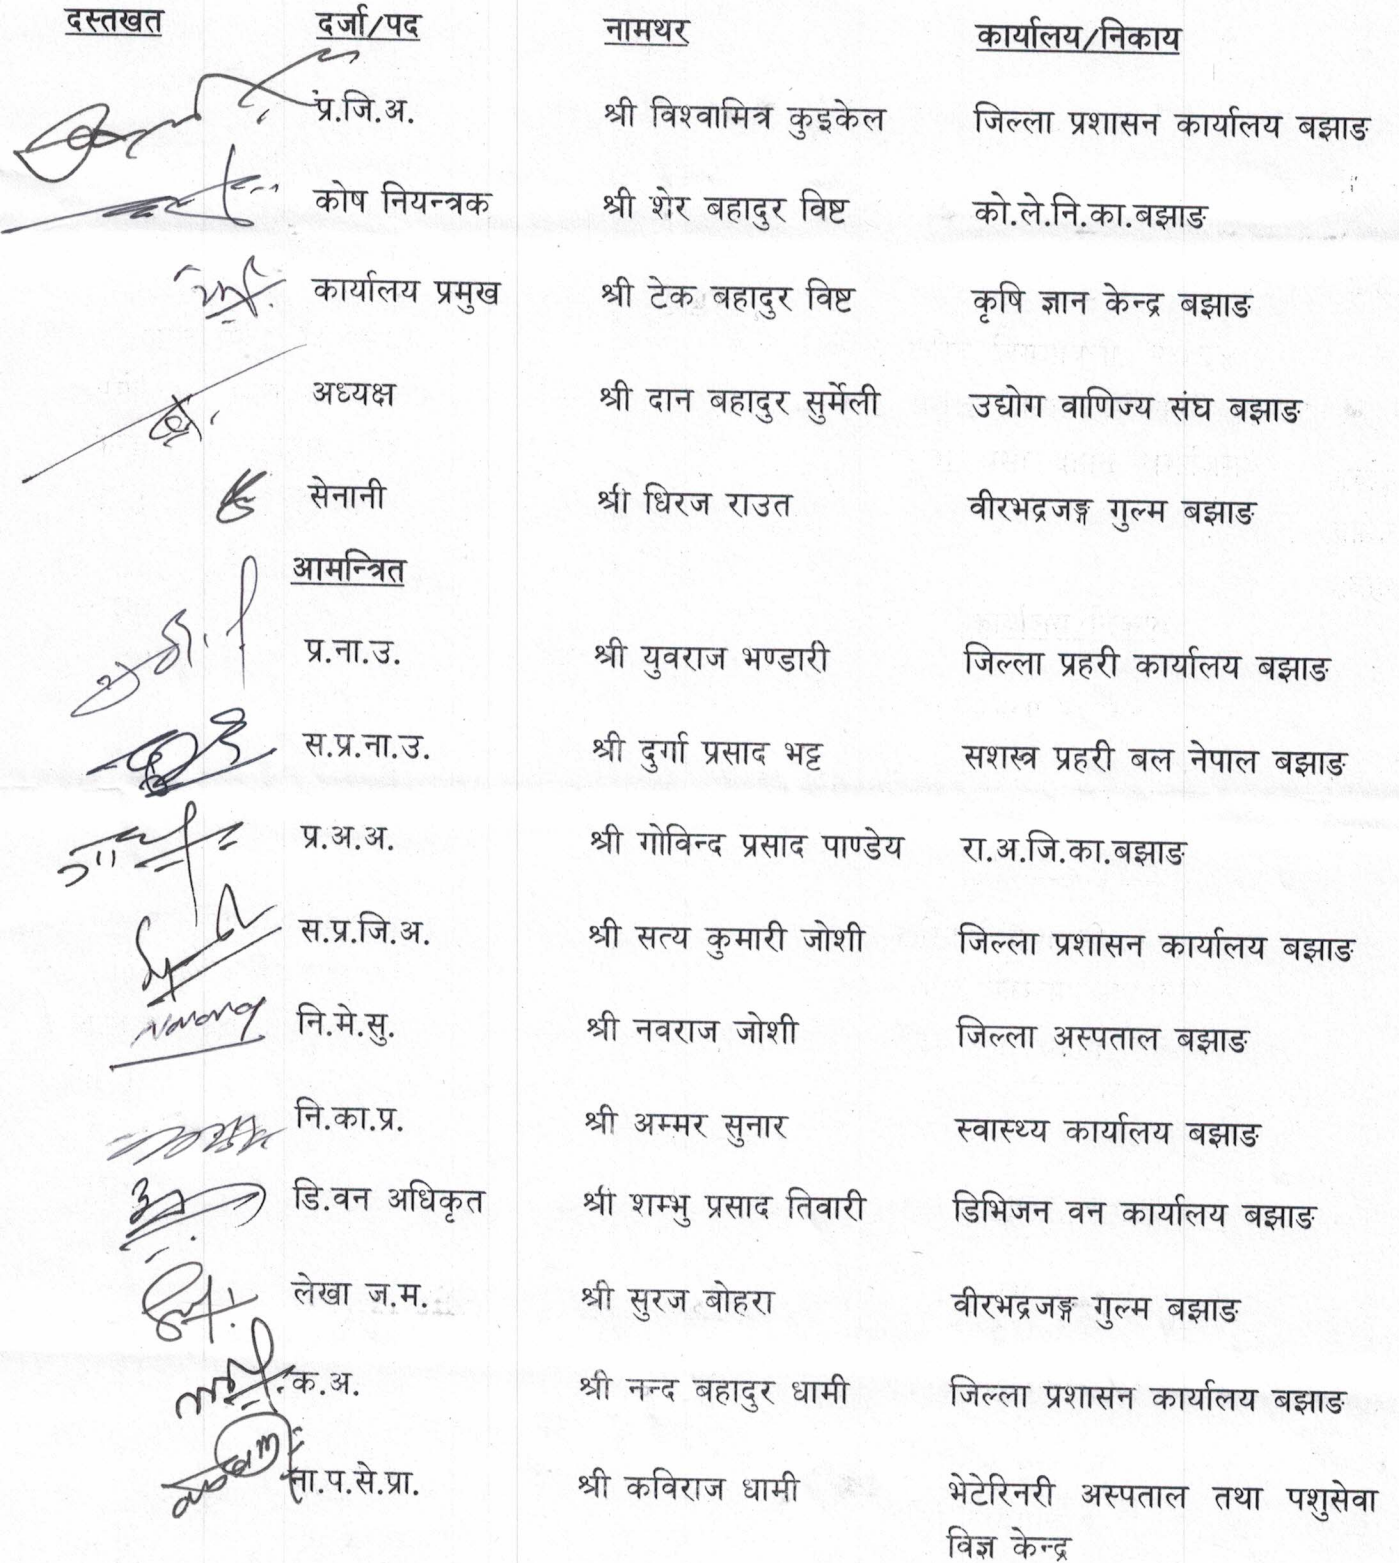 दस्तखत दर्जा/पद नामथर कार्यालय/निकाय
प्र.जि.अ. श्री विश्वामित्र कुइकेल जिल्ला प्रशासन कार्यालय बझाङ
कोष नियन्त्रक श्री शेर बहादुर विष्ट को.ले.नि.का.बझाङ
कार्यालय प्रमुख श्री टेक बहादुर विष्ट कृषि ज्ञान केन्द्र बझाङ
अध्यक्ष श्री दान बहादुर सुर्मेली उद्योग वाणिज्य संघ बझाङ
सेनानी श्री धिरज राउत वीरभद्रजङ्ग गुल्म बझाङ
आमन्त्रित
प्र.ना.उ. श्री युवराज भण्डारी जिल्ला प्रहरी कार्यालय बझाङ
स.प्र.ना.उ. श्री दुर्गा प्रसाद भट्ट सशस्त्र प्रहरी बल नेपाल बझाङ
प्र.अ.अ. श्री गोविन्द प्रसाद पाण्डेय रा.अ.जि.का.बझाङ
स.प्र.जि.अ. श्री सत्य कुमारी जोशी जिल्ला प्रशासन कार्यालय बझाङ
नि.मे.सु. श्री नवराज जोशी जिल्ला अस्पताल बझाङ
नि.का.प्र. श्री अम्मर सुनार स्वास्थ्य कार्यालय बझाङ
डि.वन अधिकृत श्री शम्भु प्रसाद तिवारी डिभिजन वन कार्यालय बझाङ
लेखा ज.म. श्री सुरज बोहरा वीरभद्रजङ्ग गुल्म बझाङ
क.अ. श्री नन्द बहादुर धामी जिल्ला प्रशासन कार्यालय बझाङ
ना.प.से.प्रा. श्री कविराज धामी भेटेरिनरी अस्पताल तथा पशुसेवा
विज्ञ केन्द्र